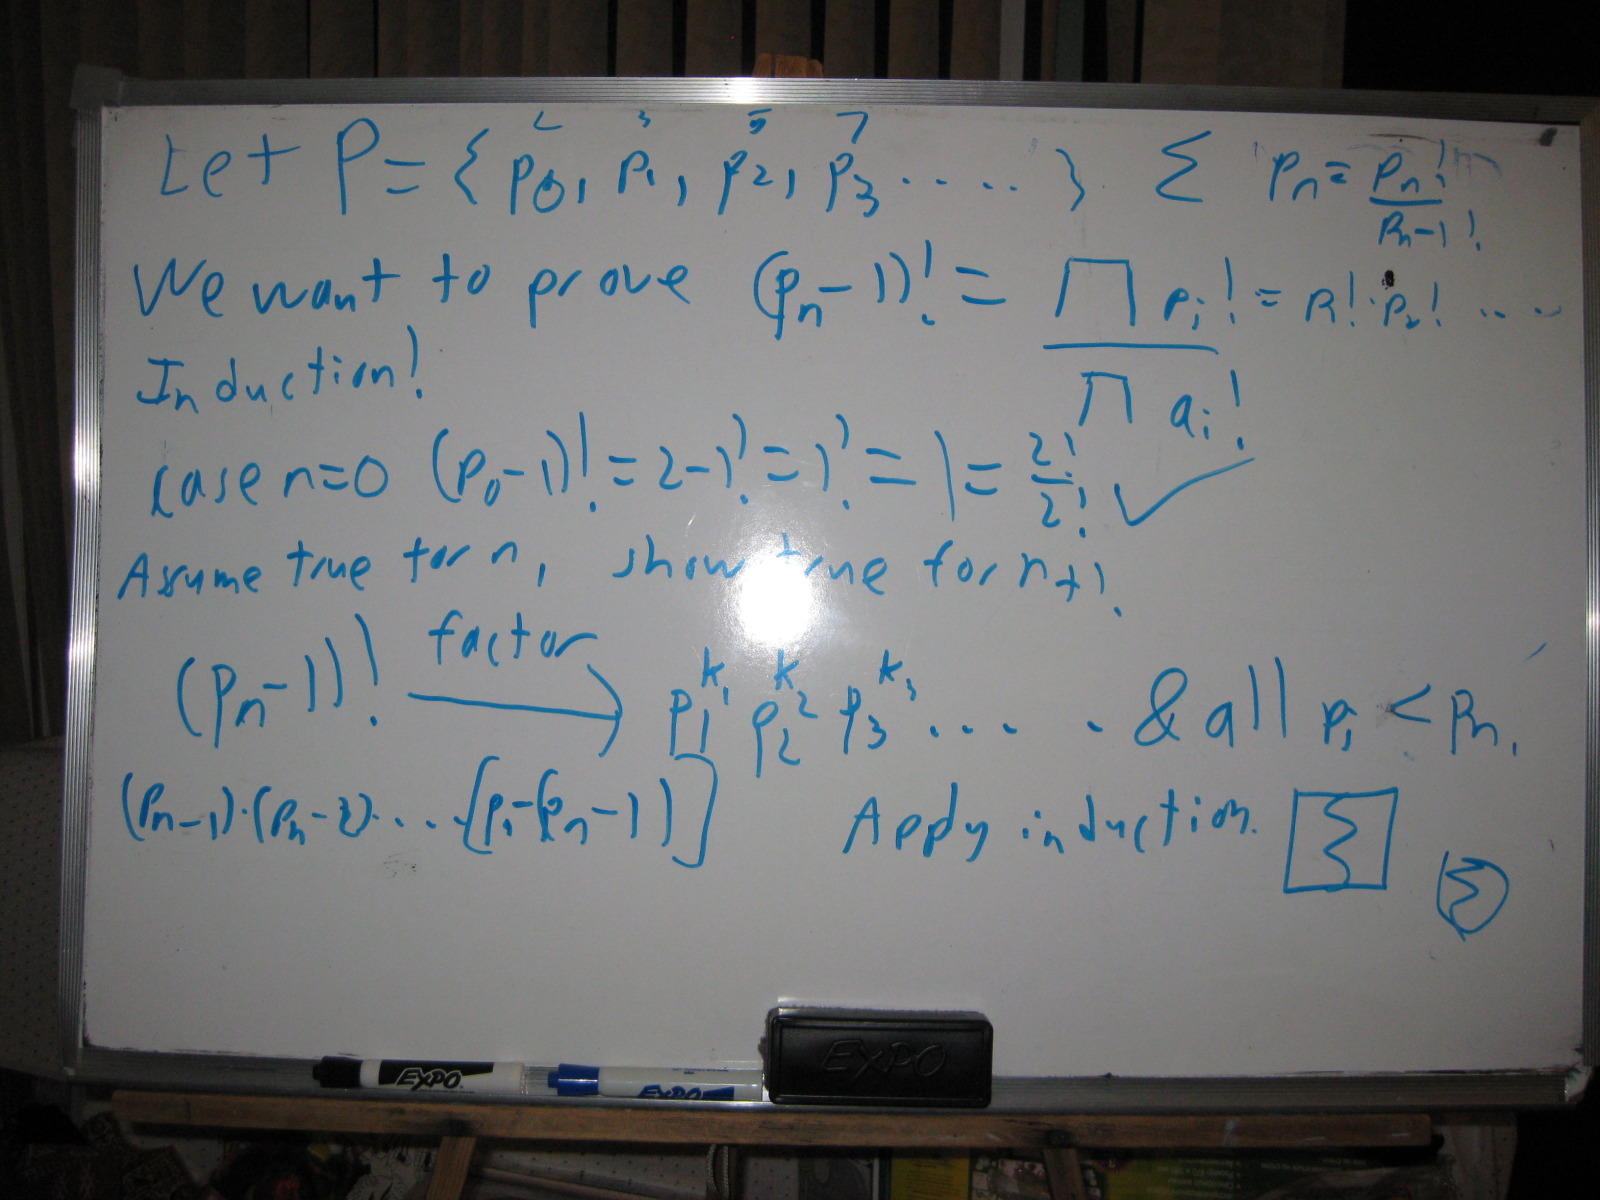 2 3 5 7
Let P = { p0, p1, p2, p3 ..... } Σ pn = pn! / pn-1!
We want to prove (pn-1)! = ∏ pi! / ∏ ai! = p1! · p2! ....
Induction!
case n=0 (p0-1)! = 2-1! = 1! = 1 = 2!/2! ✓
Assume true for n, show true for n+1.
(pn-1)! factor → p1^k1 p2^k2 p3^k3 .... & all pi < pn.
(pn-1)·(pn-2)·...·[pn-(pn-1)] Apply induction. Σ
Σ
EXPO
EXPO
EXPO